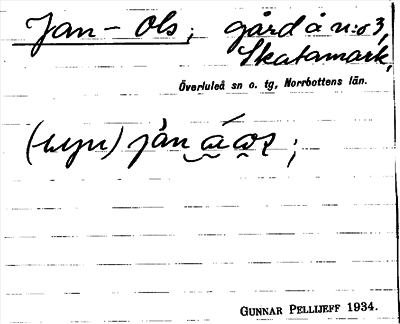 Jan-Ols; gård å n:o 3,
Skatamark,
Överluleå sn o. tg, Norrbottens län.
jan
GUNNAR PELLIJEFF 1934.